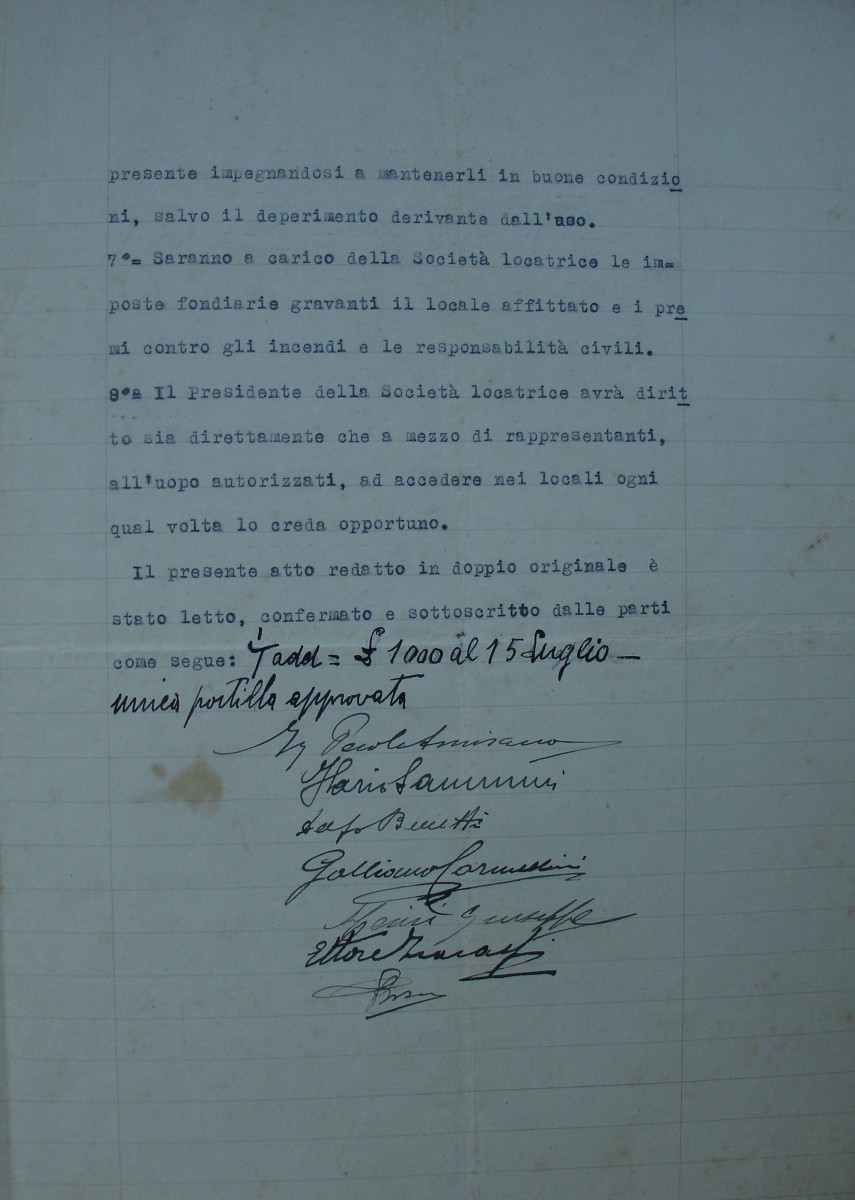 presente impegnandosi a mantenerli in buone condizio
ni, salvo il deperimento derivante dall'uso.
7°= Saranno a carico della Società locatrice le im=
poste fondiarie gravanti il locale affittato e i pre
mi contro gli incendi e le responsabilità civili.
8°= Il Presidente della Società locatrice avrà dirit
to sia direttamente che a mezzo di rappresentanti,
all'uopo autorizzati, ad accedere nei locali ogni
qual volta lo creda opportuno.
Il presente atto redatto in doppio originale è
stato letto, confermato e sottoscritto dalle parti
come segue: add = £ 1000 al 15 Luglio —
unica postilla approvata
Mario
Galliano
Giuseppe
Ettore